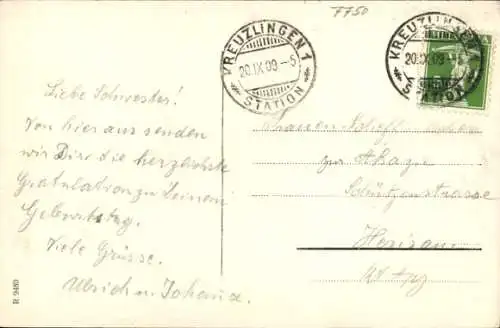 7750
KREUZLINGEN 1
20.IX.09 - 5
STATION
KREUZLINGEN
20.IX.09
STATION
Liebe Schwester!
Von hier aus senden
wir Dir die herzlichste
Gratulation zu Deinem
Geburtstag.
Viele Grüsse.
Ulrich u. Johana.
Frauen
zur
Schützenstrasse
Herisau
R 9480